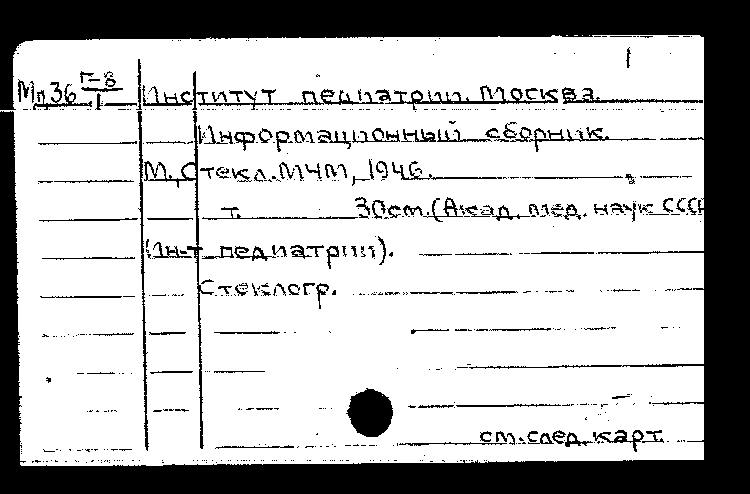 1
Мп36 Г-8/1 Институт педиатрии. Москва.
Информационный сборник.
М., Стекл. МЧМ, 1946.
т. 30см. (Акад. мед. наук СССР
Ин-т педиатрии).
Стеклогр.
см. след. карт.